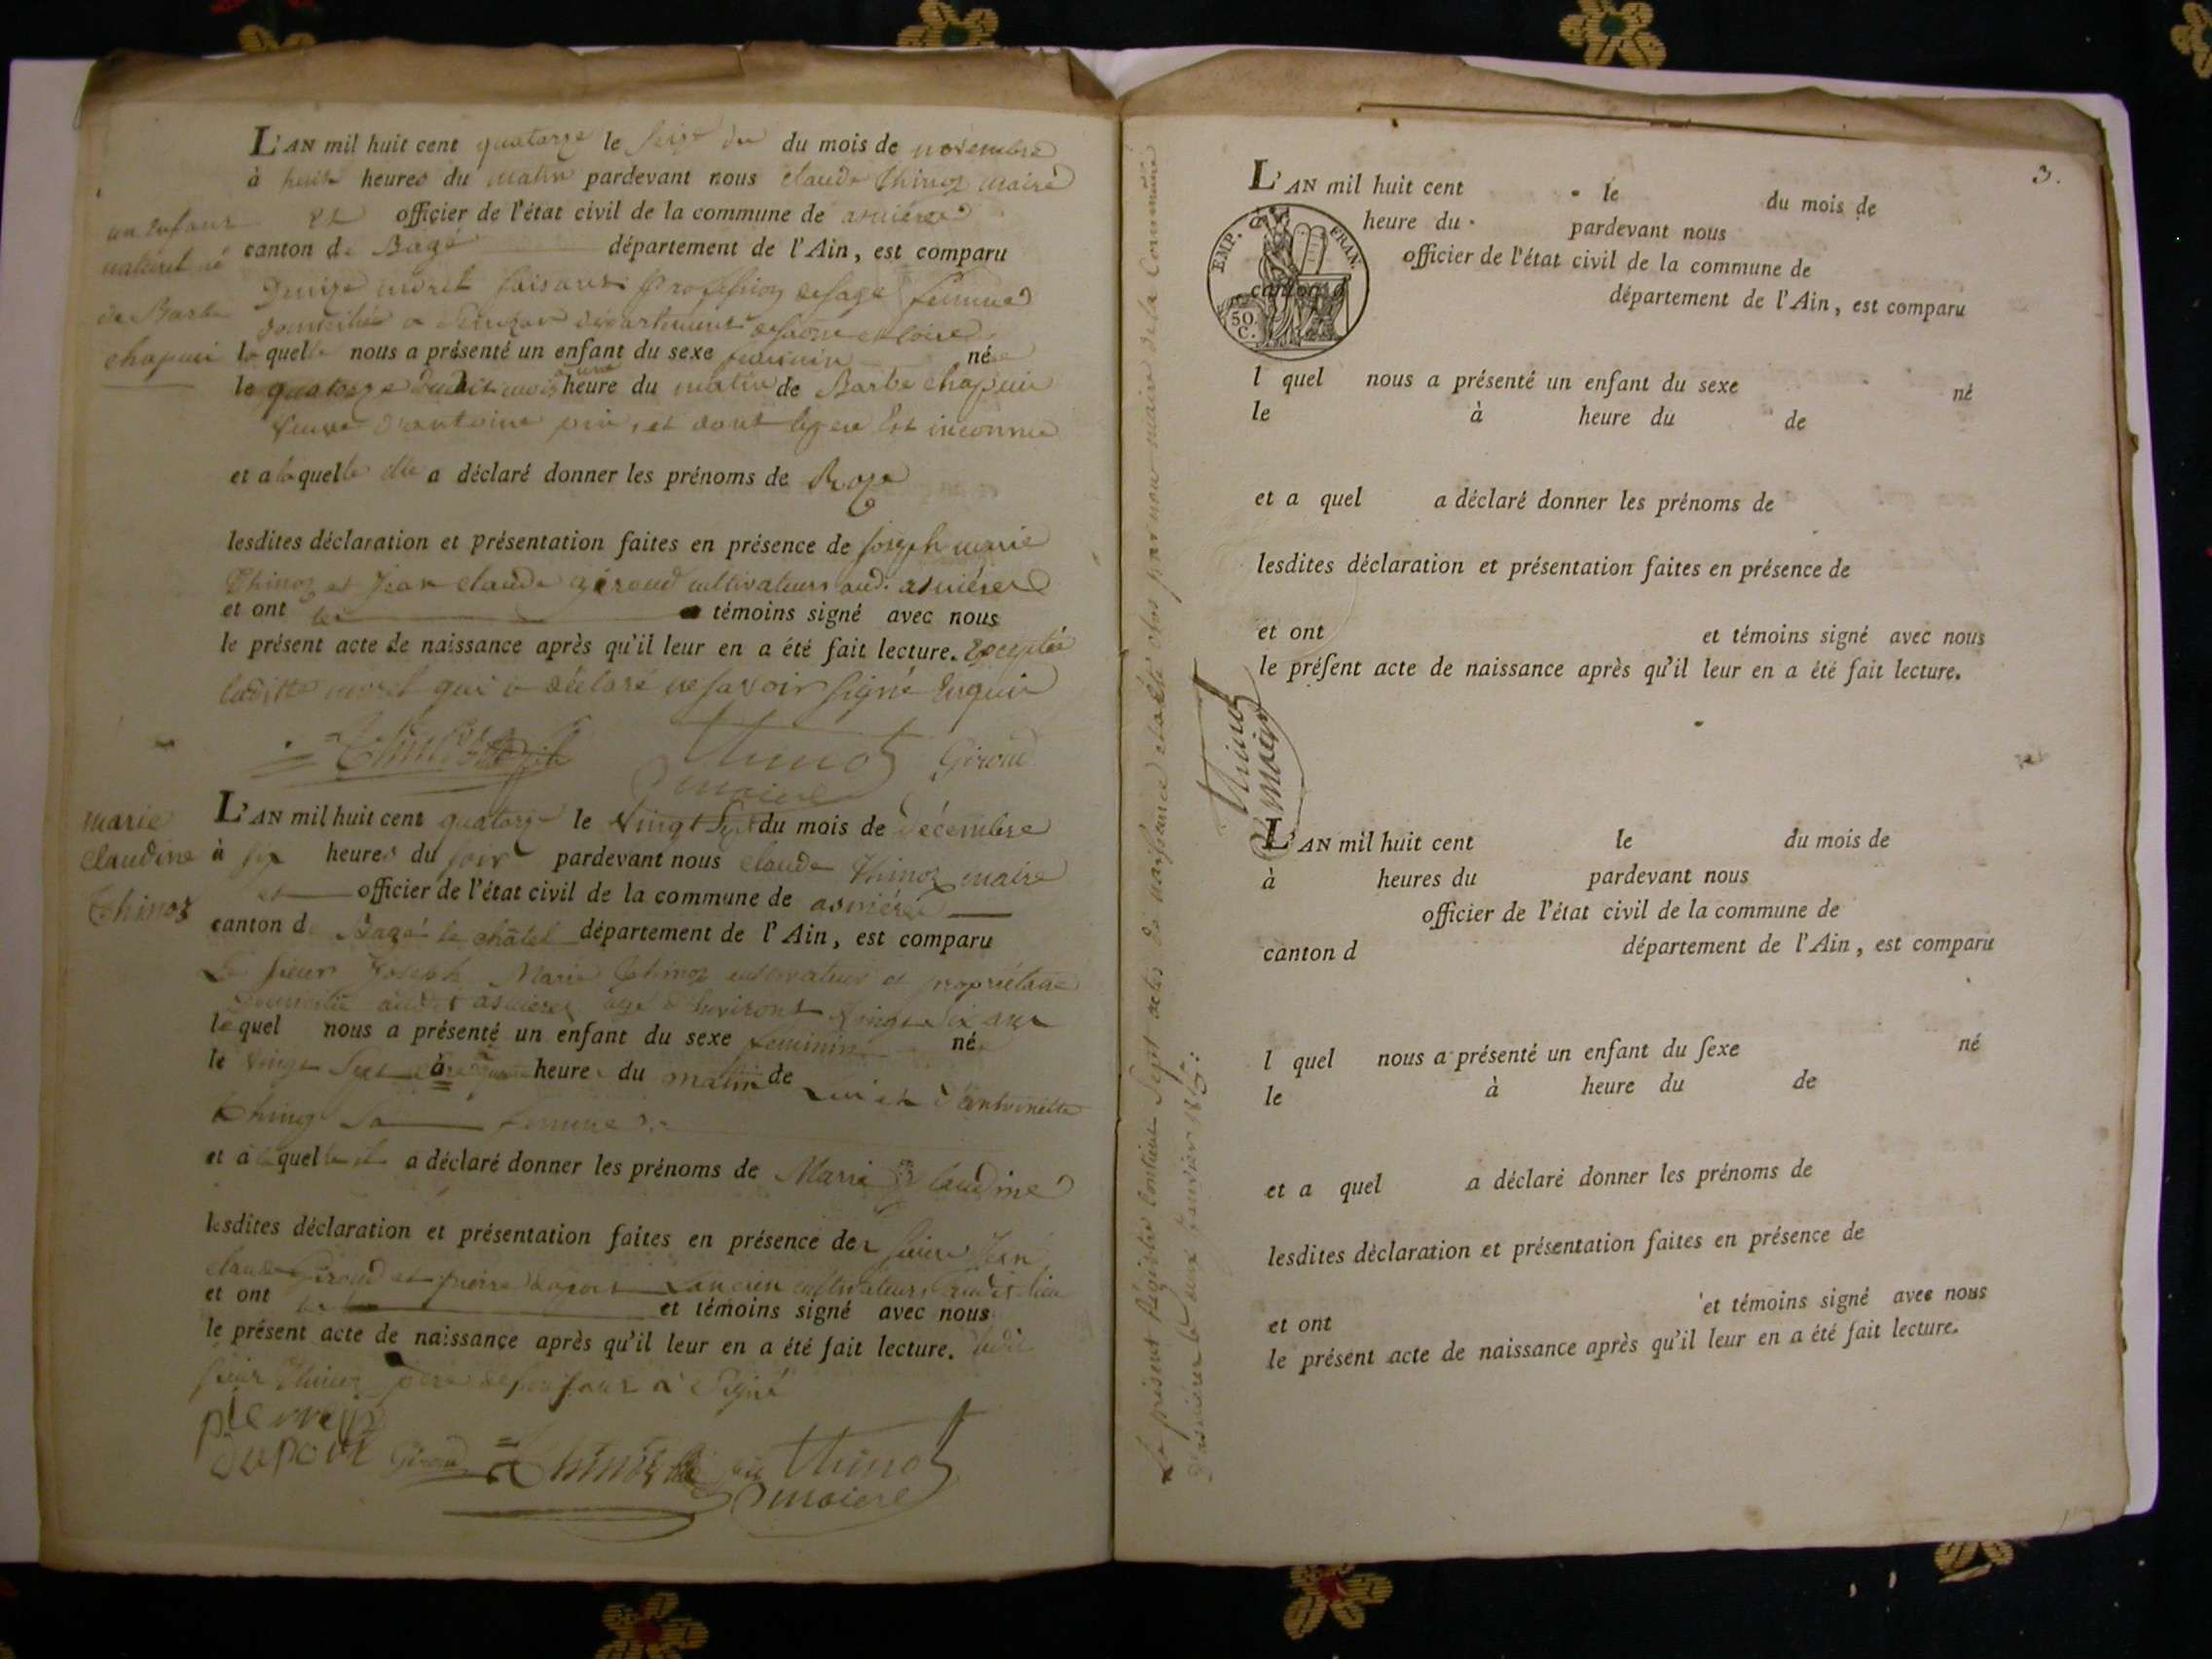 L'AN mil huit cent quatorze le seize du mois de novembre
à huit heures du matin pardevant nous claude Thinoz maire
et officier de l'état civil de la commune de asnières
canton de Bagé département de l'Ain, est comparu
un enfant
naturel né
de Barbe
chapuis
moret faisant profession de sage femme
domiciliée a département de saone et loire
la quelle nous a présenté un enfant du sexe feminin née
le quatorze dudit mois à une heure du matin de Barbe chapuis
veuve d'antoine et dont le pere Est inconnu
et a la quelle elle a déclaré donner les prénoms de Roze
lesdites déclaration et présentation faites en présence de joseph marie
Thinoz et Jean claude giroud cultivateurs aud. asnières
et ont les témoins signé avec nous
le présent acte de naissance après qu'il leur en a été fait lecture. Exceptée
laditte moret qui a déclaré ne savoir signé Enquis
Thinoz fils Thinoz Giroud
maire
marie
claudine
Thinoz
L'AN mil huit cent quatorze le vingt sept du mois de décembre
à six heures du soir pardevant nous claude Thinoz maire
et officier de l'état civil de la commune de asnières
canton de Bagé le châtel département de l'Ain, est comparu
Le sieur Joseph Marie Thinoz cultivateur et propriétaire
domicilié audit asnieres agé d'environt vingt six ans
le quel nous a présenté un enfant du sexe feminin née
le vingt sept à heure du matin de lui et d'Antoinette
Thinoz Sa femme
et à la quelle il a déclaré donner les prénoms de Marie Claudine
lesdites déclaration et présentation faites en présence des sieurs Jean
claude Giroud et pierre Dupont L'ancien cultivateurs audit lieu
et ont les et témoins signé avec nous
le présent acte de naissance après qu'il leur en a été fait lecture. ledit
sieur Thinoz père de l'enfant a Signé
pierre
dupont Giroud Thinoz fils Thinoz
maire
Le présent Régistre contient Sept actes de naissance clos par nous maire de la Commune
d'asnières le janvier 1815.
Thinoz
maire
3.
L'AN mil huit cent le du mois de
à heure du pardevant nous
officier de l'état civil de la commune de
canton d département de l'Ain, est comparu
EMP. FRAN.
50
C.
l quel nous a présenté un enfant du sexe né
le à heure du de
et a quel a déclaré donner les prénoms de
lesdites déclaration et présentation faites en présence de
et ont et témoins signé avec nous
le préſent acte de naissance après qu'il leur en a été fait lecture.
L'AN mil huit cent le du mois de
à heures du pardevant nous
officier de l'état civil de la commune de
canton d département de l'Ain, est comparu
l quel nous a présenté un enfant du ſexe né
le à heure du de
et a quel a déclaré donner les prénoms de
lesdites déclaration et présentation faites en présence de
et ont et témoins signé avec nous
le présent acte de naissance après qu'il leur en a été fait lecture.